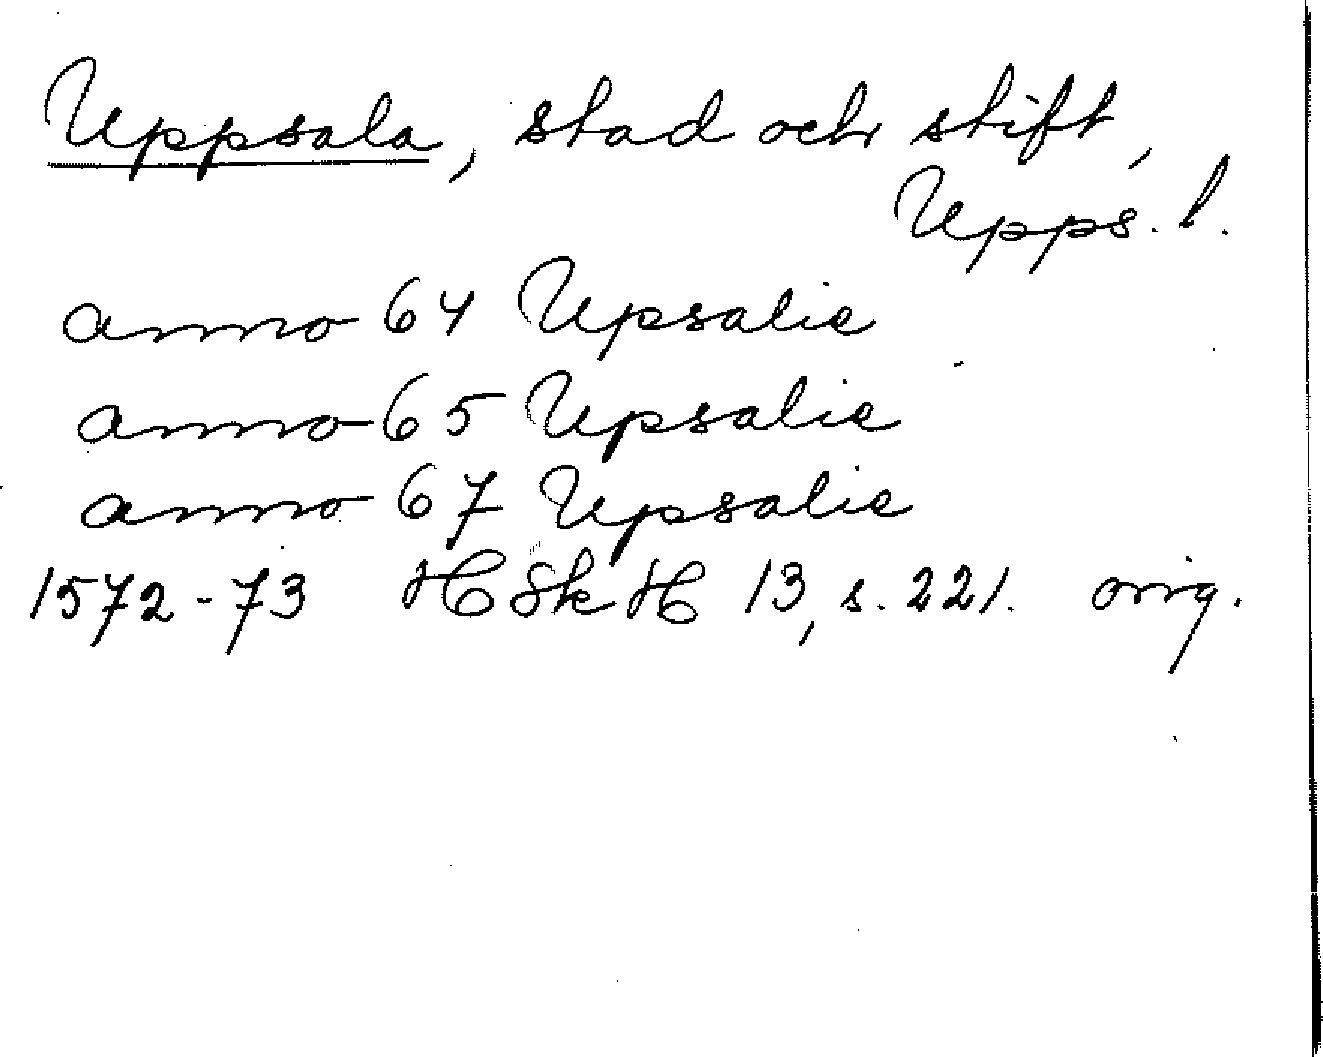 Uppsala, stad och stift,
Upps. l.
anno 64 Upsalie
anno 65 Upsalie
anno 67 Upsalie
1572-73 HSkH 13, s. 221. orig.